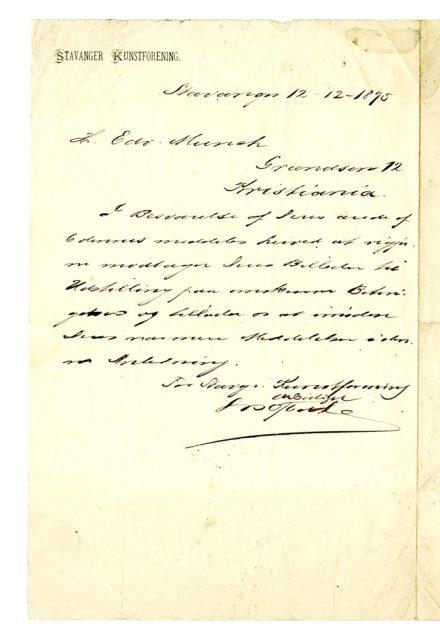 STAVANGER KUNSTFORENING.
Stavanger 12-12-1895
H. Edv. Munch
Grandsen 12
Kristiania.
I Besvarelse af Deres ærede af
meddeles herved at
modtager Deres Billeder til
Udstilling paa
og tillader os at imødese
Deres nærmere Meddelelse i den
Anledning.
For Stavgr. Kunstforening